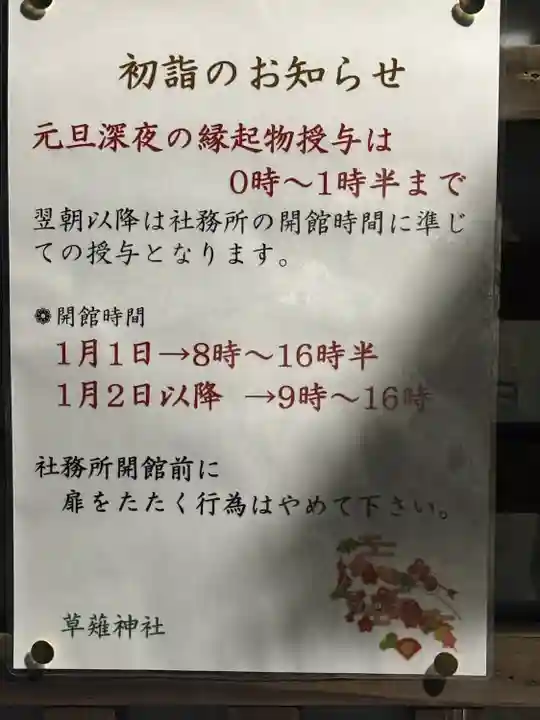 初詣のお知らせ
元旦深夜の縁起物授与は
0時～1時半まで
翌朝以降は社務所の開館時間に準じ
ての授与となります。
❁開館時間
1月1日→8時～16時半
1月2日以降 →9時～16時
社務所開館前に
扉をたたく行為はやめて下さい。
草薙神社